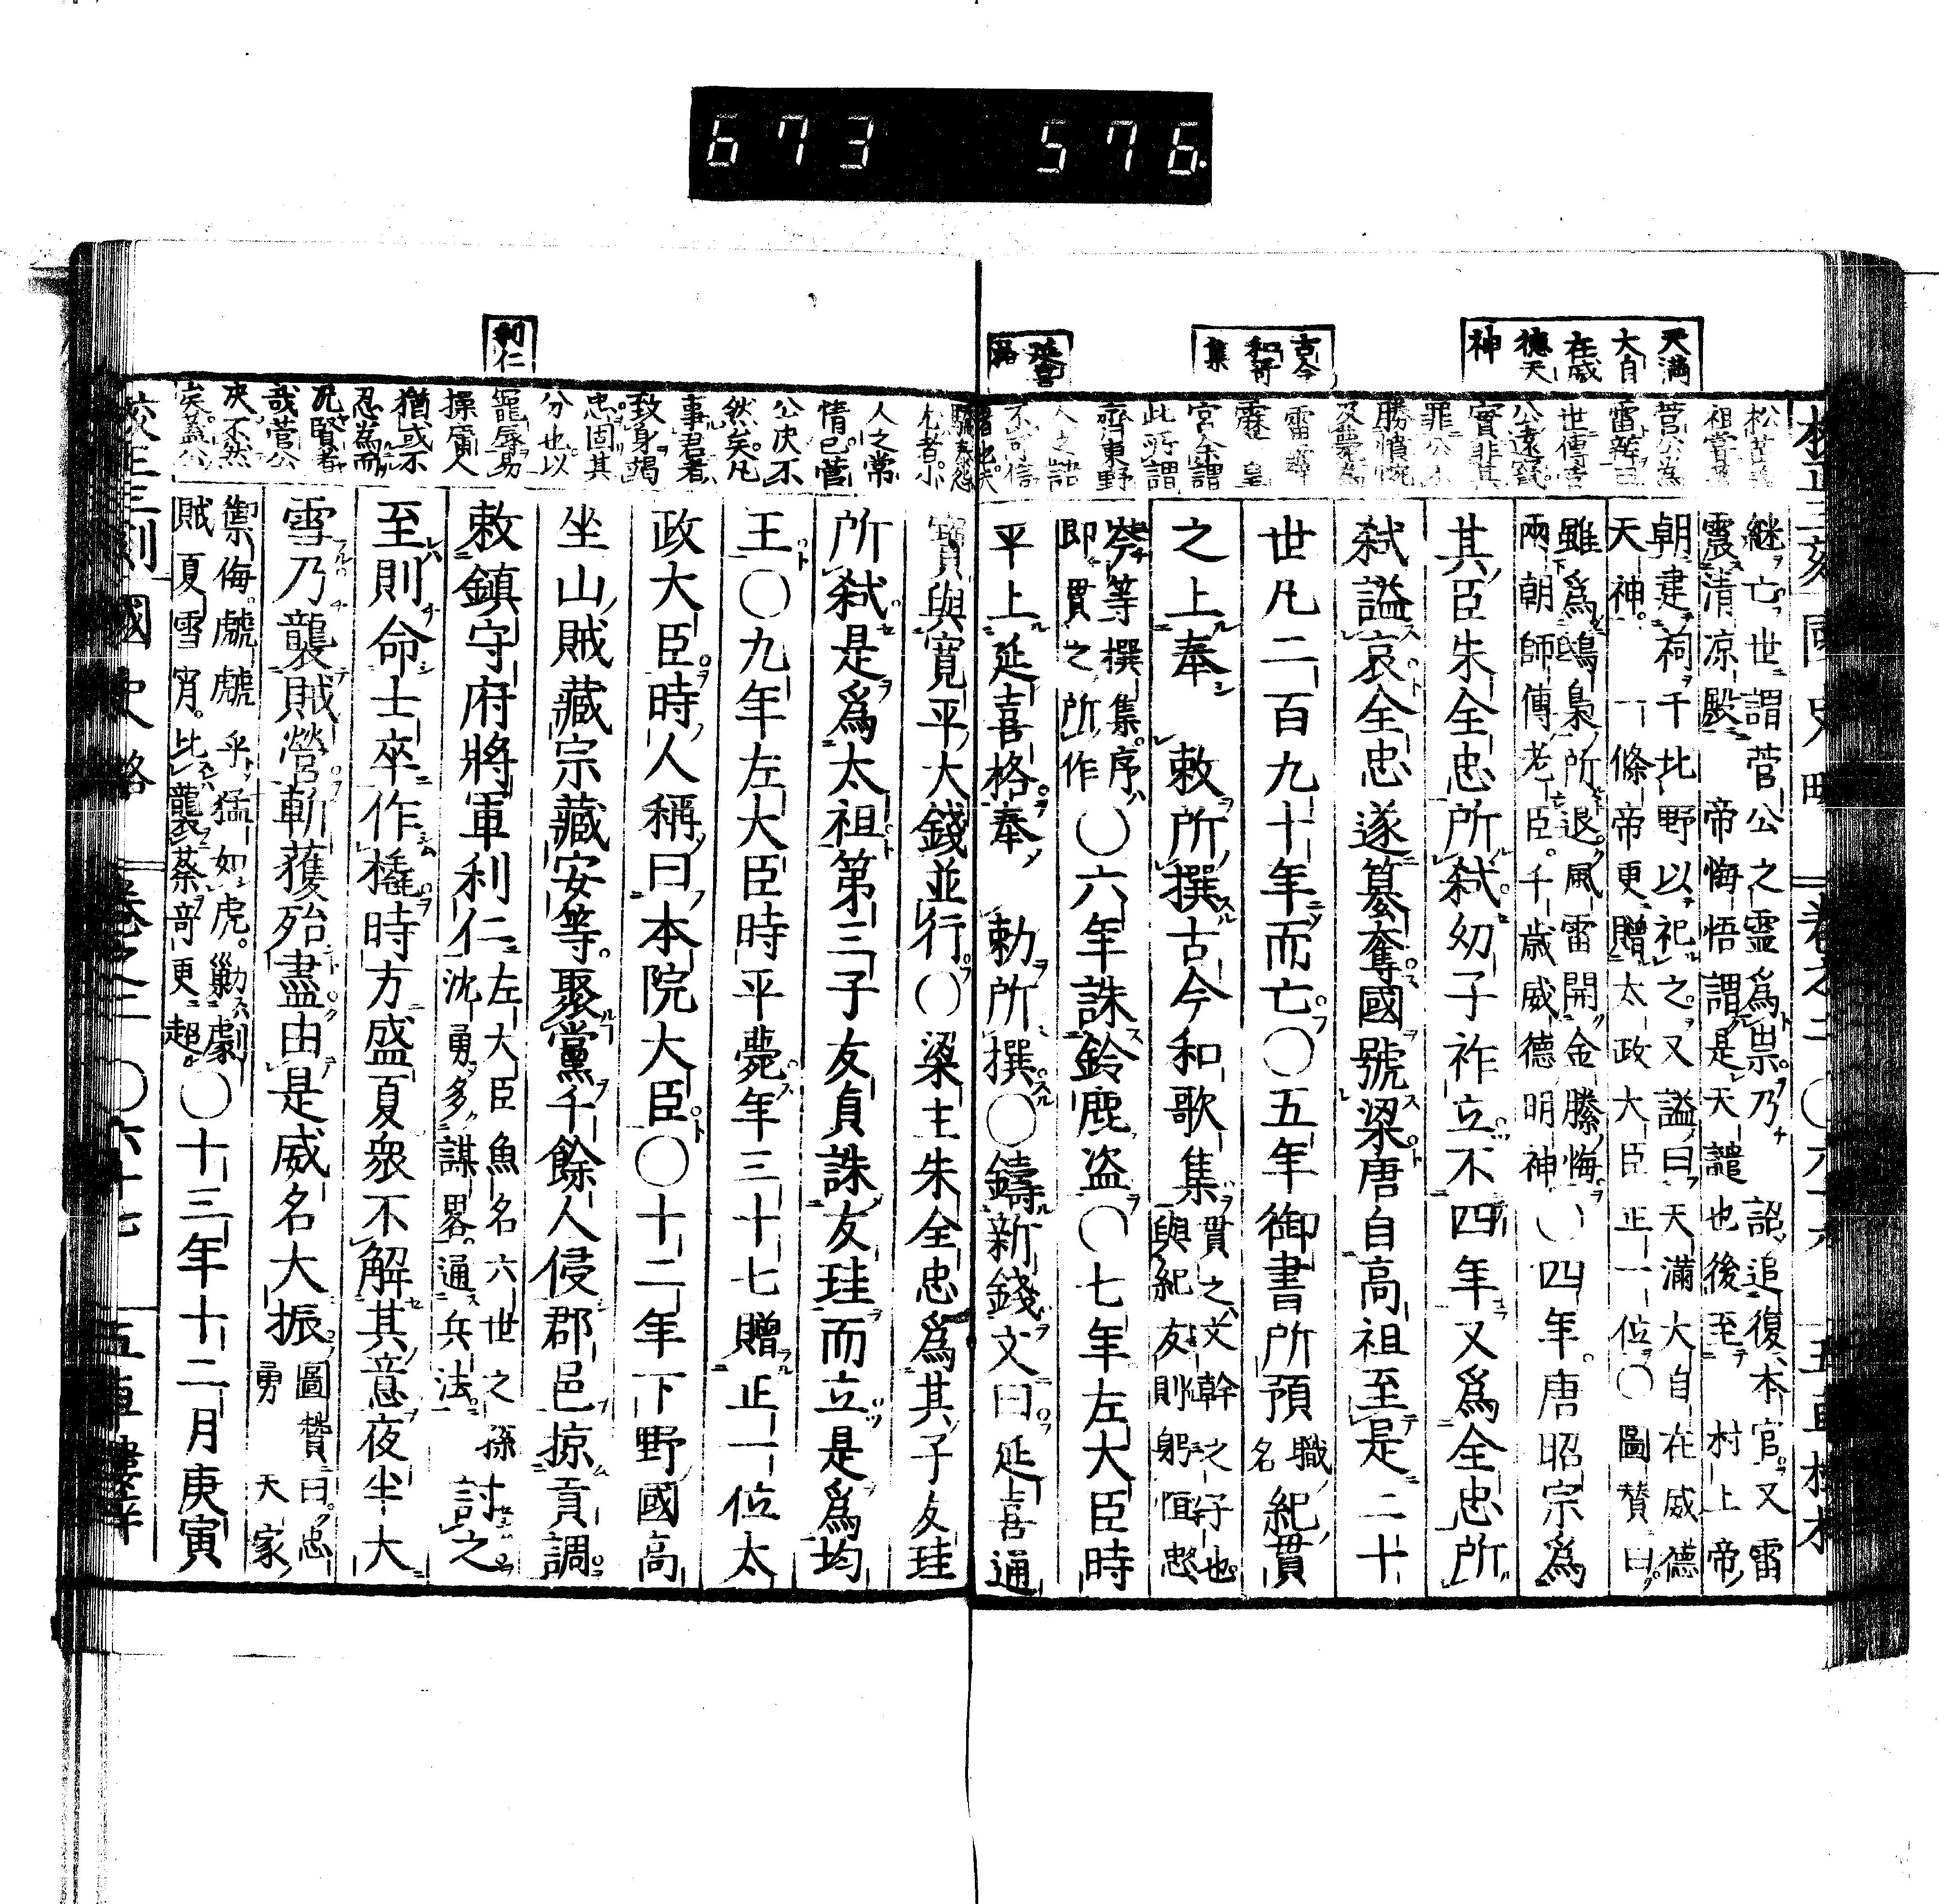 673 576
天滿
大自
在威
德天
神
古今
和哥
集
延喜
格
利仁
継亡世謂菅公之靈爲祟乃 詔追復本官又雷
震清凉殿 帝悔悟謂是天譴也後至 村上帝
朝建祠千北野以祀之又謚曰天滿大自在威德
天神 一條帝更贈太政大臣正一位〇圖賛曰
雖爲鴟梟所退風雷開金縢悔
兩朝師傅老臣千歲威德明神
〇四年唐昭宗爲
其臣朱全忠所弑幼子祚立不四年又爲全忠所
弑謚哀全忠遂簒奪國號梁唐自高祖至是二十
世凡二百九十年而亡〇五年御書所預
職
名
紀貫
之上奉 敕所撰古今和歌集
貫之文幹之子也
與紀友則躬恒忠
岑等撰集序
即貫之所作
〇六年誅鈴鹿盗〇七年左大臣時
平上延喜格奉 勅所撰〇鑄新錢文曰延喜通
寳與寬平大錢並行〇梁主朱全忠爲其子友珪
所弑是爲太祖第三子友貞誅友珪而立是爲均
王〇九年左大臣時平薨年三十七贈正一位太
政大臣時人稱曰本院大臣〇十二年下野國高
坐山賊藏宗藏安等聚黨千餘人侵郡邑掠貢調
敕鎮守府將軍利仁
左大臣魚名六世之孫
沈勇多謀畧通兵法
討之
至則命士卒作橇時方盛夏衆不解其意夜半大
雪乃襲賊營斬獲殆盡由是威名大振
圖贊曰忠
勇 天家
禦侮虩虩乎猛如虎勦劇
賊夏雪宵比襲蔡竒更超
〇十三年十二月庚寅
人之常
情已菅
公决不
然矣凡
事君者
致身竭
忠固其
分也以
寵辱易
操庸人
猶或不
忍為而
况賢者
哉菅公
决不然
矣蓋公
國史略 卷之二 〇六十七 五車樓